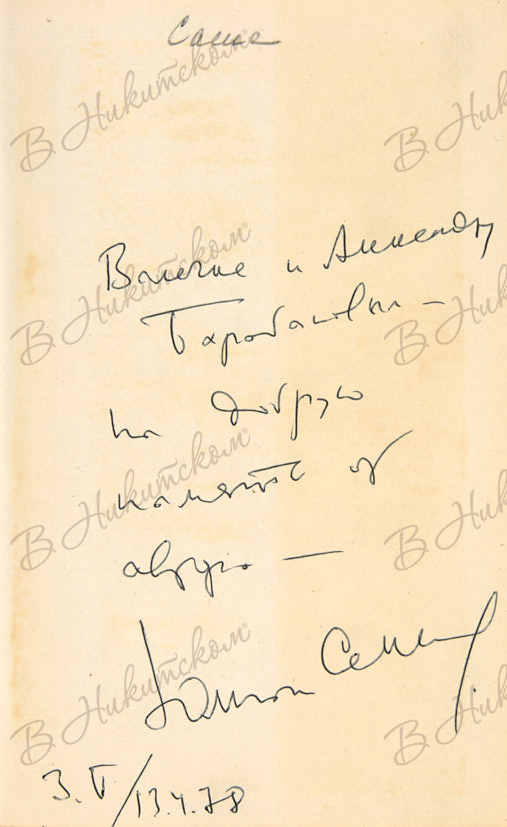 Саше
Валечке и Александру
Барабановым —
на добрую
память от
автора —
Юлиан Семенов
3.V/13.4.78
В Никитском